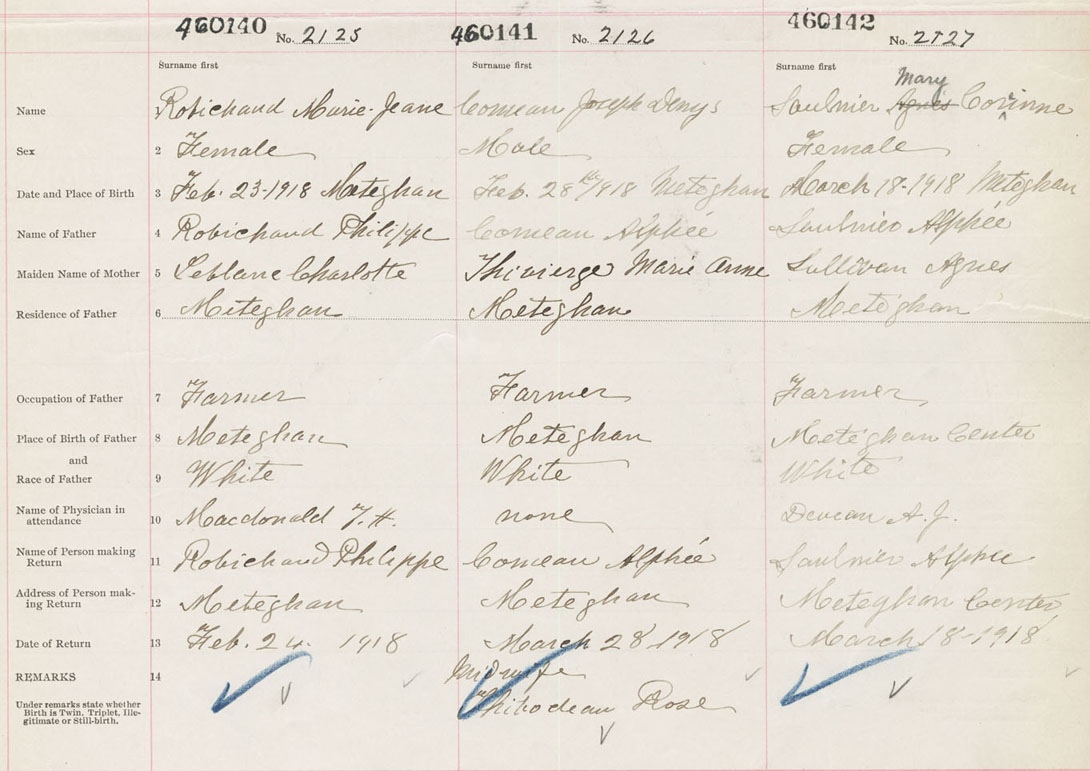 460140 No. 2125 460141 No. 2126 460142 No. 2127
Surname first Surname first Surname first
Mary
Name 1 Robichaud Marie-Jeane Comeau Joseph Denys Saulnier Agnes Corinne
Sex 2 Female Male Female
Date and Place of Birth 3 Feb. 23-1918 Meteghan Feb. 28th/1918 Meteghan March 18-1918 Meteghan
Name of Father 4 Robichaud Philippe Comeau Alphée Saulnier Alphée
Maiden Name of Mother 5 Leblanc Charlotte Thivierge Marie Anne Sullivan Agnes
Residence of Father 6 Meteghan Meteghan Meteghan
Occupation of Father 7 Farmer Farmer Farmer
Place of Birth of Father 8 Meteghan Meteghan Meteghan Center
and
Race of Father 9 White White White
Name of Physician in
attendance 10 Macdonald none A. J.
Name of Person making
Return 11 Robichaud Philippe Comeau Alphée Saulnier Alphée
Address of Person mak-
ing Return 12 Meteghan Meteghan Meteghan Center
Date of Return 13 Feb. 1918 March 28-1918 March 18-1918
REMARKS 14 Midwife
Under remarks state whether
Birth is Twin, Triplet, Ille-
gitimate or Still-birth.
Thibodeau Rose